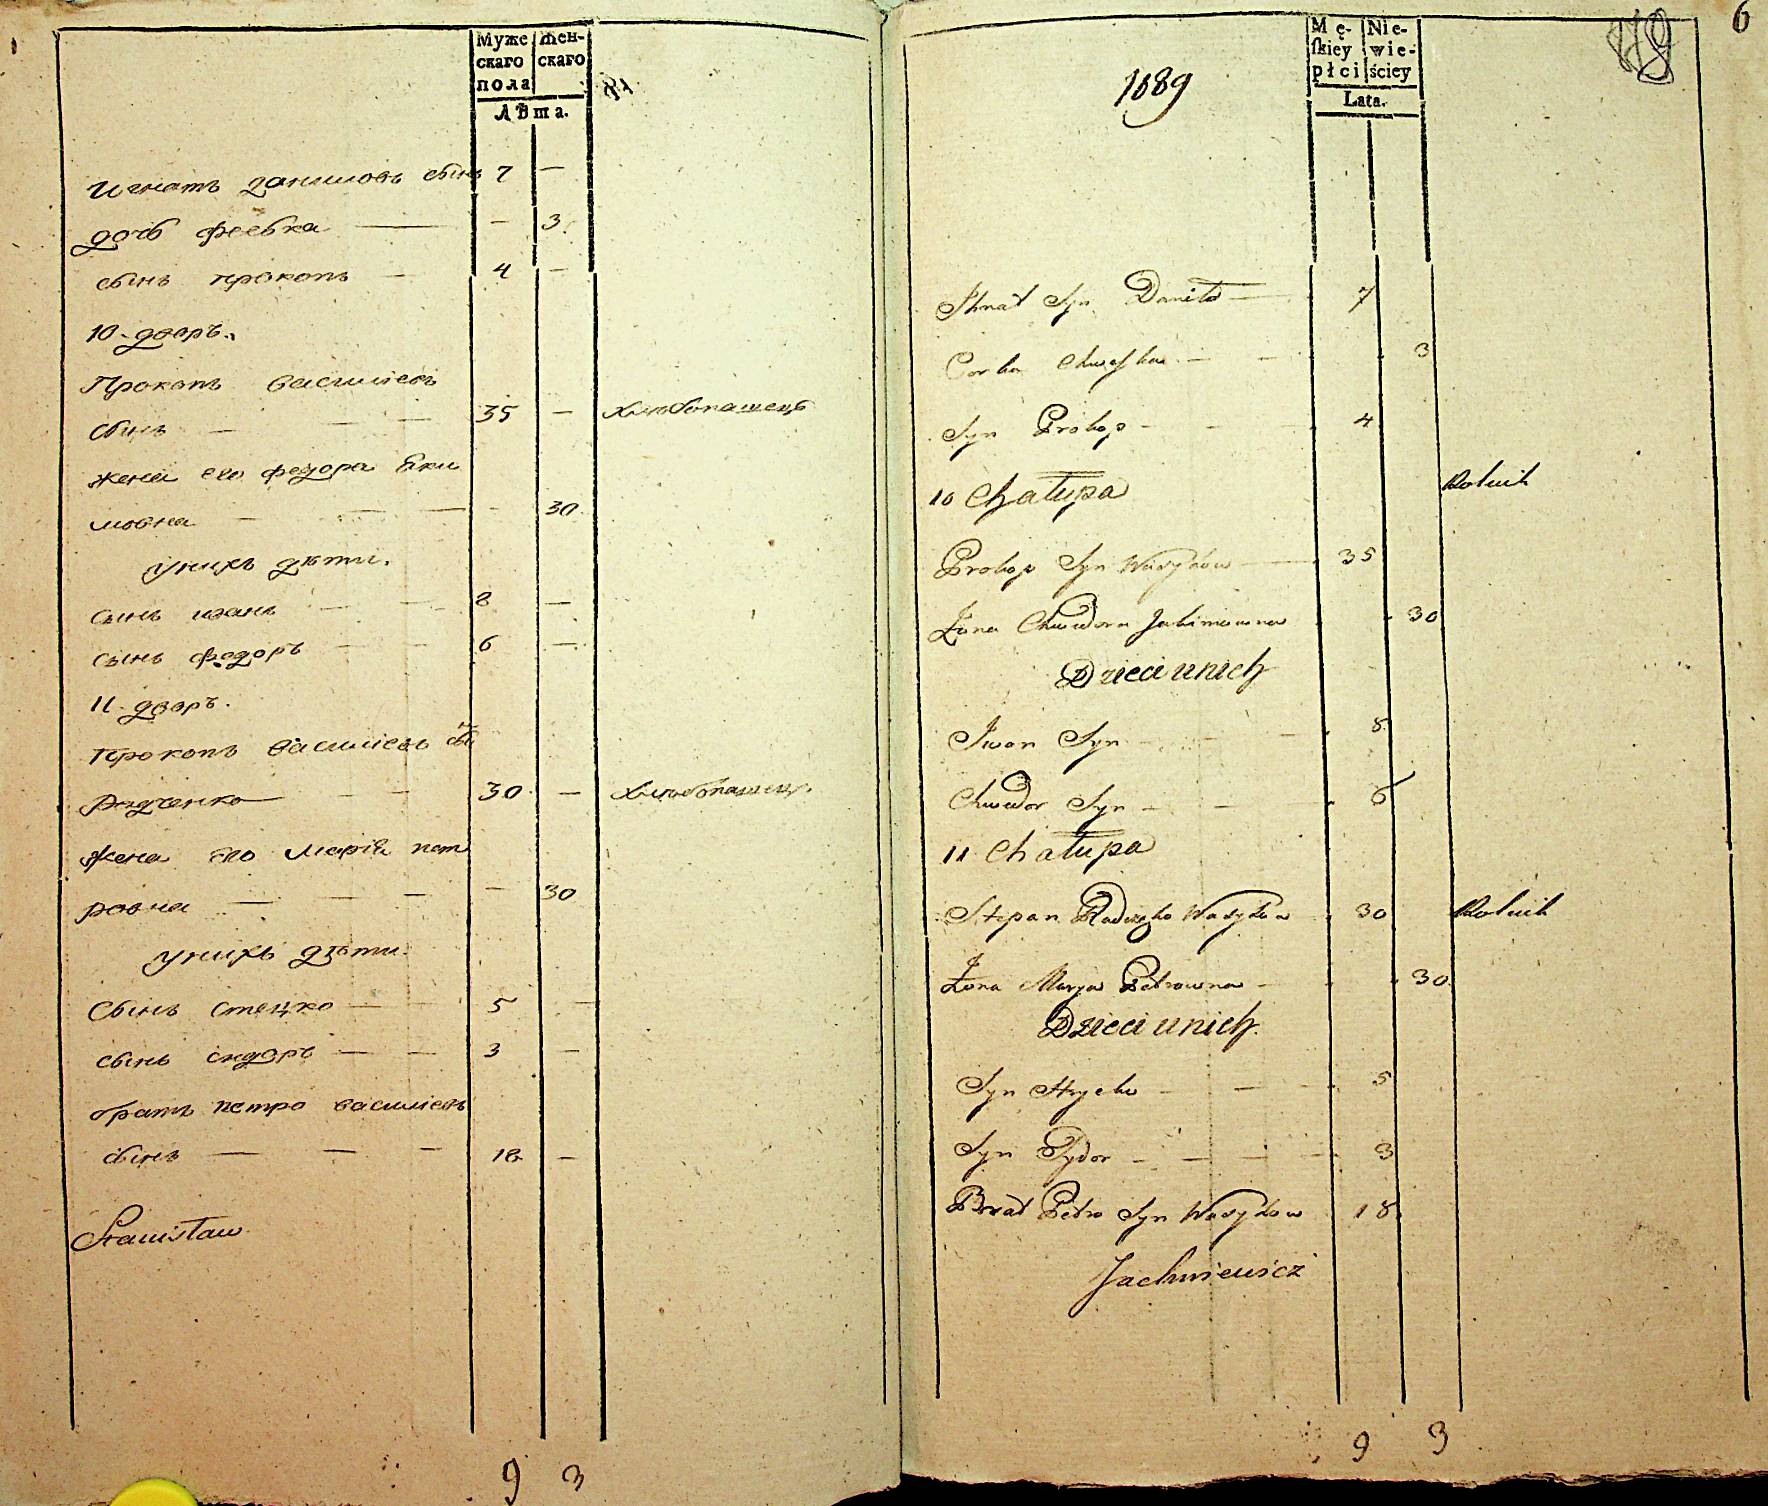 Муже
скаго
пола
Жен-
скаго
Лѣта.
Игнатъ даниловъ сынъ 7 —
дочь феська — — 3
сынъ прокопъ — 4 —
10. дворъ.
Прокопъ василіевъ
сынъ — — — 35 — хлѣбопашецъ
жена его федора Яки
мовна — — — - 30
у нихъ дѣти.
сынъ иванъ — — 8 —
сынъ федоръ — — 6 —
11. дворъ.
Прокопъ василіевъ сы͠н
Радченко — — 30 — хлѣбопашецъ
Жена его Марія пет
ровна — — — — 30
у нихъ дѣти.
Сынъ стецко — — 5 —
сынъ сидоръ — — 3 —
братъ петро василіевъ
сынъ — — — 18 —
Stanisław
9 3
6
1889
Mę-
ſkiey
płci
Nie-
wie-
ściey
Lata.
Ihnat Syn Daniło — 7
Corka Chweſka — — 3
Syn Prokop — — 4
10 Chałupa Rolnik
Prokop Syn Wasylów — 35
Żona Chwedora Jakimowna 30
Dzieci u nich
Iwan Syn — — 8
Chwedor Syn — — 6
11 Chałupa
Stepan Radczęko Wasylów 30 Rolnik
Żona Marya Petrowna — 30
Dzieci u nich
Syn Stycko — — 5
Syn Sydor — — — 3
Brat Petro Syn Wasylow 18
Jachniewicz
9 3